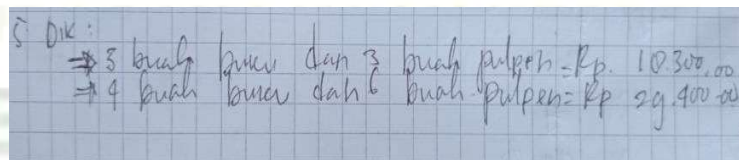 5 Dik :
⇒ 3 buah buku dan 3 buah pulpen = Rp. 10.300,00
⇒ 4 buah buku dan 6 buah pulpen = Rp 29.400.00